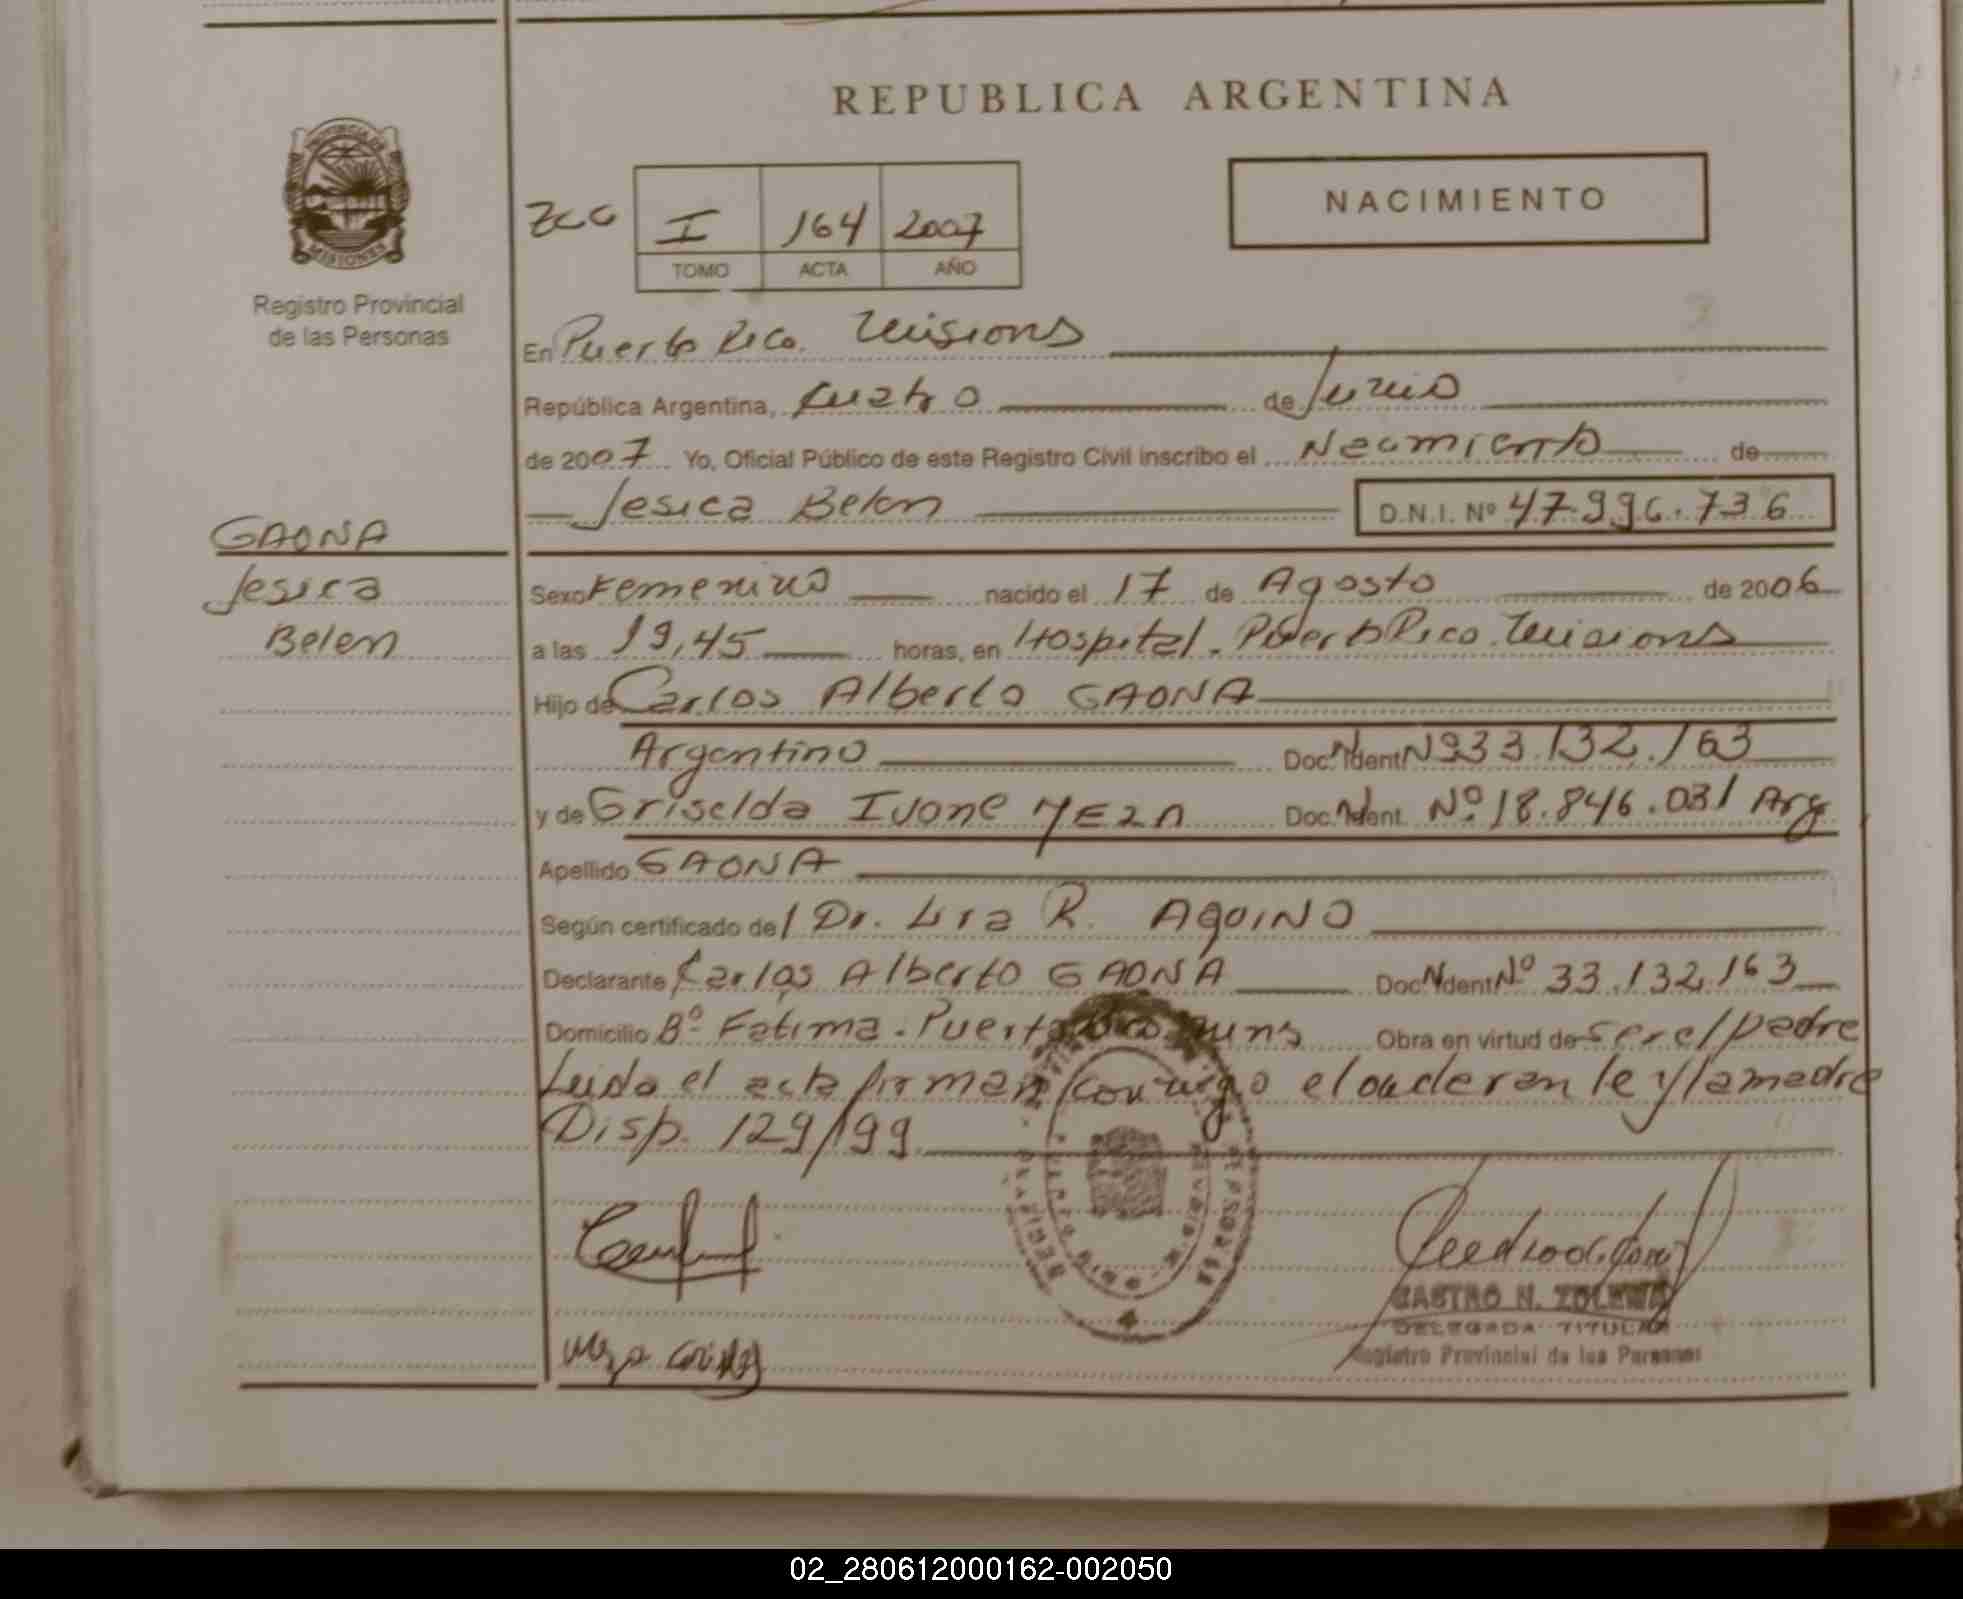 REPUBLICA ARGENTINA
PROVINCIA DE
MISIONES
Registro Provincial
de las Personas
NACIMIENTO
I 164 2007
TOMO ACTA AÑO
En Puerto Rico. Misiones
República Argentina, Cuatro de Junio
de 2007 Yo, Oficial Público de este Registro Civil inscribo el Nacimiento de
Jesica Belen D.N.I. Nº 47.996.736
GAONA
Jesica
Belen
Sexo Femenino nacido el 17 de Agosto de 2006
a las 19,45 horas, en Hospital. Puerto Rico. Misiones
Hijo de Carlos Alberto GAONA
Argentino Doc. Ident Nº 33.132.163
y de Griselda Ivone MEZA Doc. Ident. Nº 18.846.031 Arg
Apellido GAONA
Según certificado de Dr. R. AQUINO
Declarante Carlos Alberto GAONA Doc Ident Nº 33.132.163
Domicilio Bº Fatima. Puerto Rico Mns Obra en virtud de ser el padre
Leida el acta firman conmigo el declarante y la madre
Disp. 129/99
Meza
CASTRO N.
DELEGADA TITULAR
Registro Provincial de las Personas
02_280612000162-002050